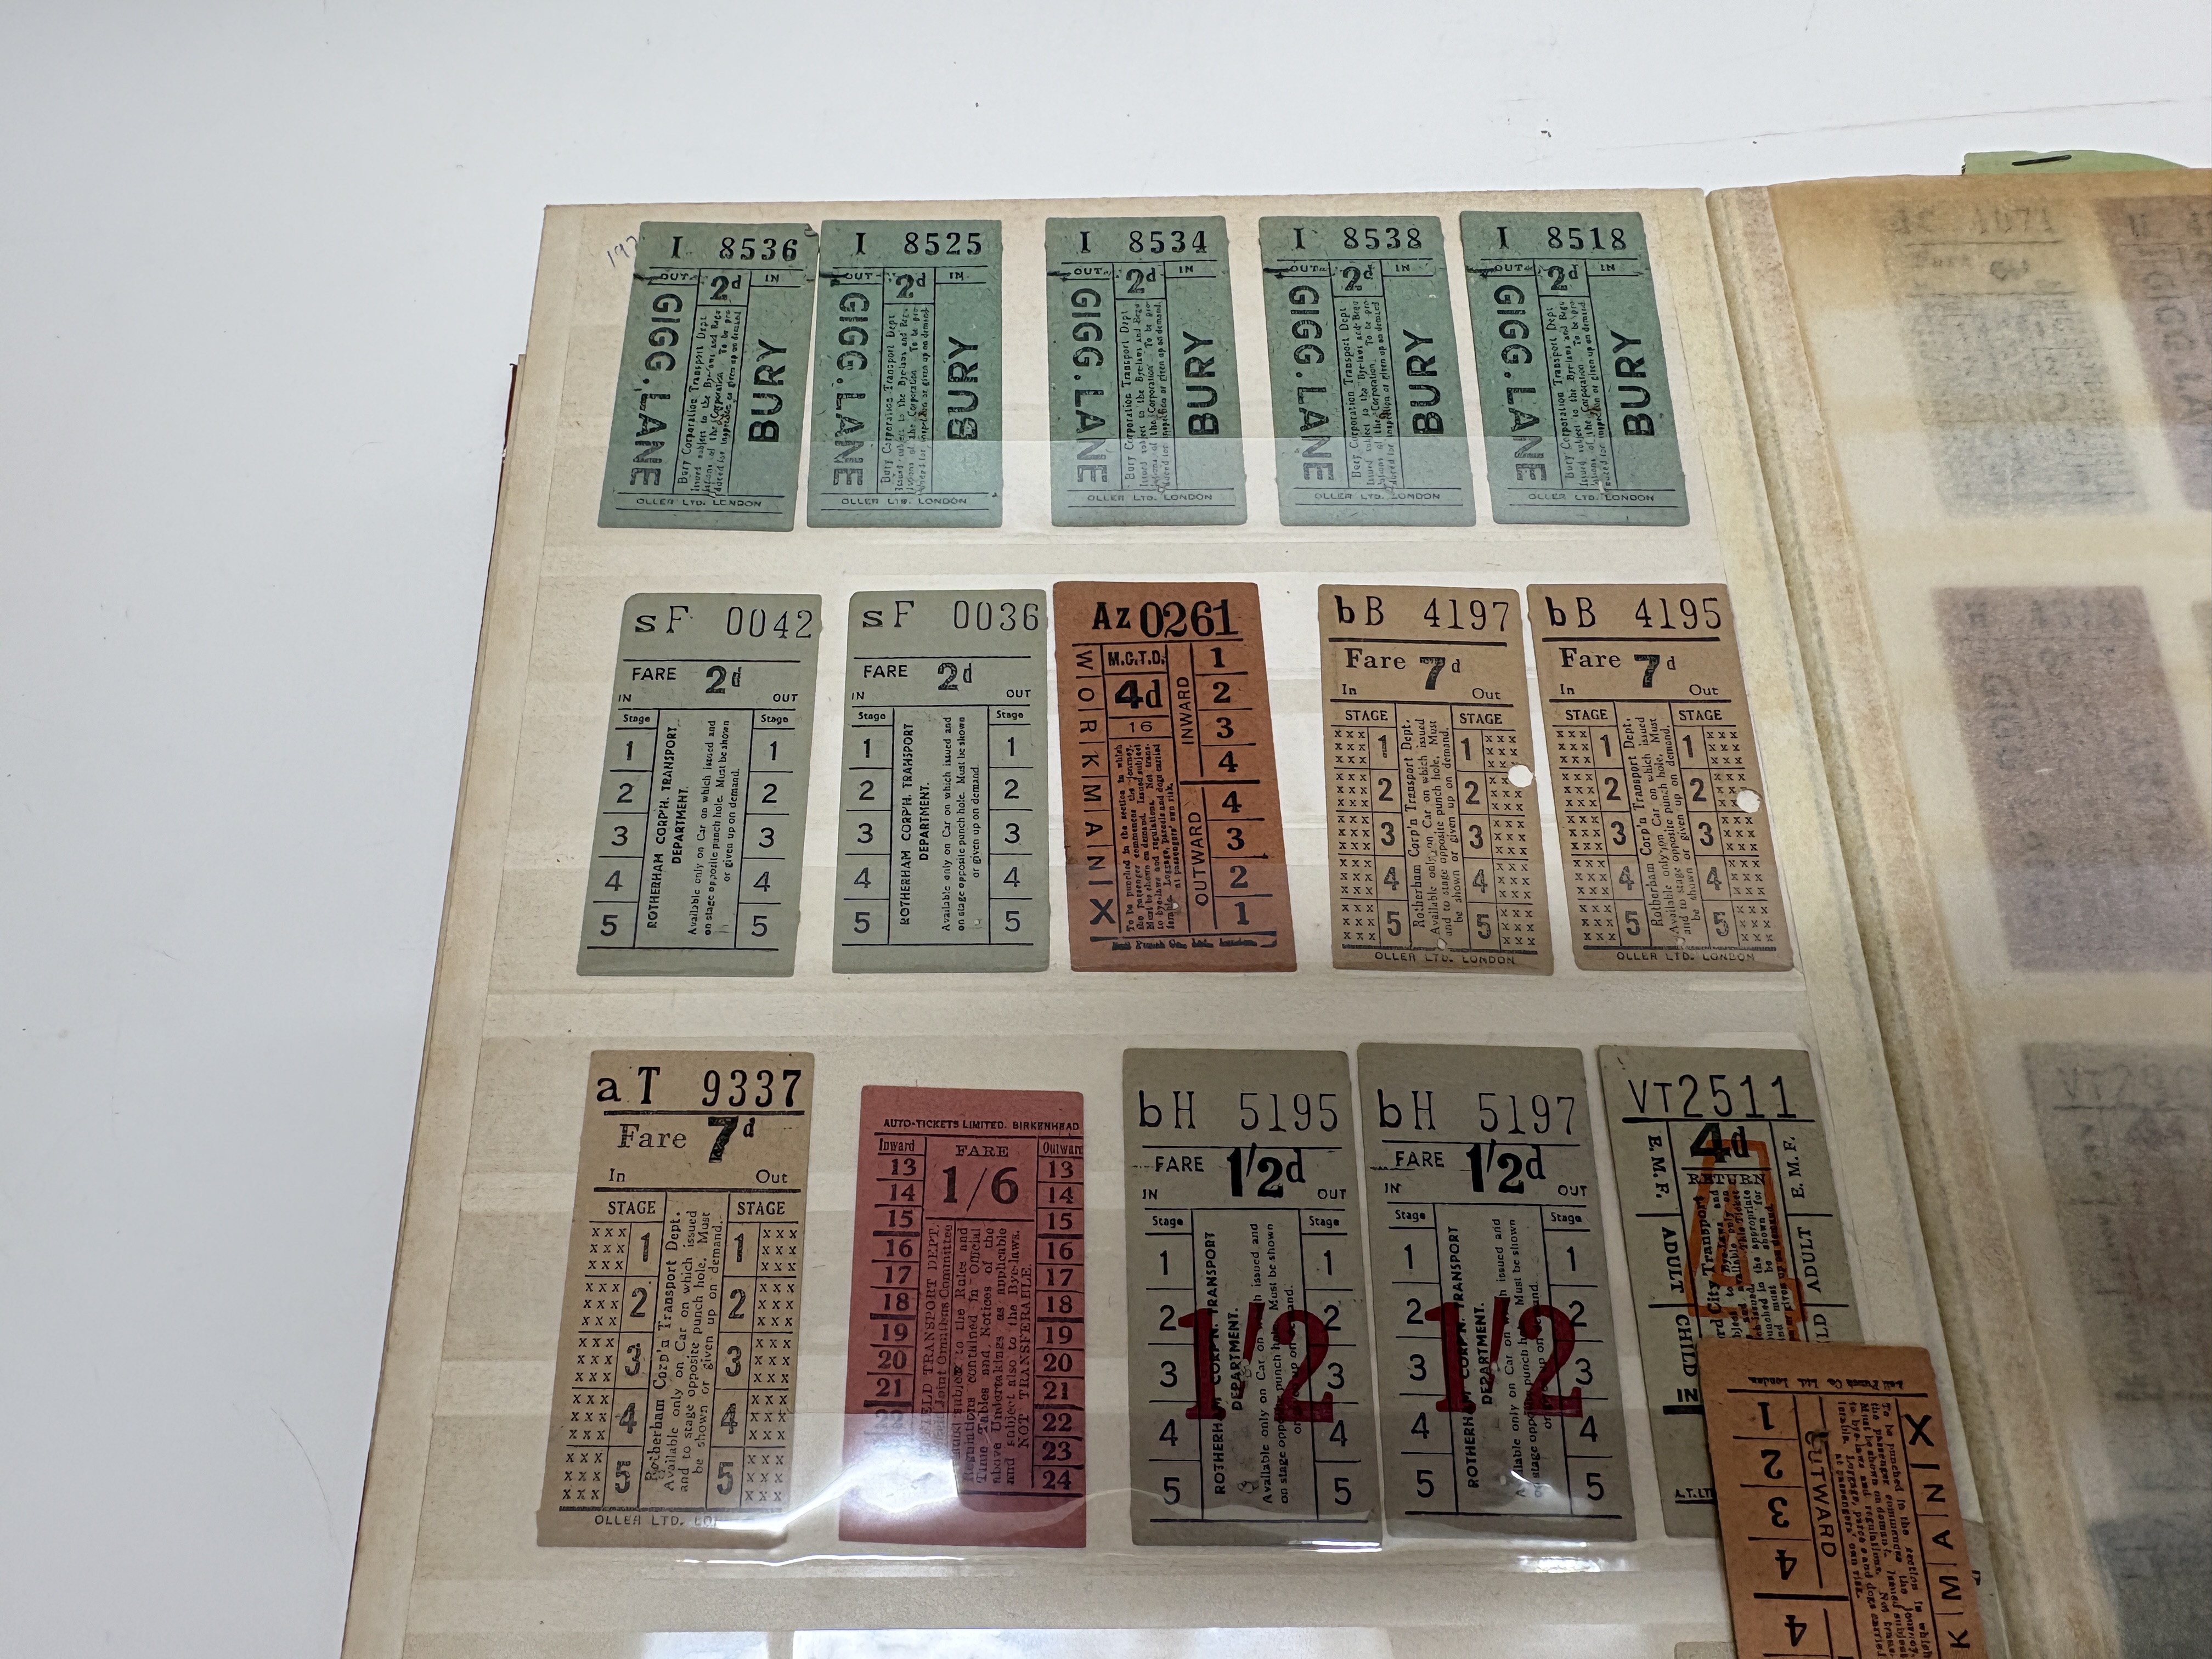 I 8536
OUT 2d IN
GIGG.LANE
Bury Corporation Transport Dept
Issued subject to the Bye-laws and Regu-
lations of the Corporation. To be pro-
duced for inspection or given up on demand.
BURY
OLLER LTD. LONDON
I 8525
OUT 2d IN
GIGG.LANE
Bury Corporation Transport Dept
Issued subject to the Bye-laws and Regu-
lations of the Corporation. To be pro-
duced for inspection or given up on demand.
BURY
OLLER LTD. LONDON
I 8534
OUT 2d IN
GIGG.LANE
Bury Corporation Transport Dept
Issued subject to the Bye-laws and Regu-
lations of the Corporation. To be pro-
duced for inspection or given up on demand.
BURY
OLLER LTD. LONDON
I 8538
OUT 2d IN
GIGG.LANE
Bury Corporation Transport Dept
Issued subject to the Bye-laws and Regu-
lations of the Corporation. To be pro-
duced for inspection or given up on demand.
BURY
OLLER LTD. LONDON
I 8518
OUT 2d IN
GIGG.LANE
Bury Corporation Transport Dept
Issued subject to the Bye-laws and Regu-
lations of the Corporation. To be pro-
duced for inspection or given up on demand.
BURY
OLLER LTD. LONDON
sF 0042
FARE 2d
IN OUT
Stage Stage
1 1
2 2
3 3
4 4
5 5
ROTHERHAM CORP'N. TRANSPORT
DEPARTMENT.
Available only on Car on which issued and
on stage opposite punch hole. Must be shown
or given up on demand.
sF 0036
FARE 2d
IN OUT
Stage Stage
1 1
2 2
3 3
4 4
5 5
ROTHERHAM CORP'N. TRANSPORT
DEPARTMENT.
Available only on Car on which issued and
on stage opposite punch hole. Must be shown
or given up on demand.
Az 0261
WORKMAN X
M.C.T.D.
4d
16
INWARD
1
2
3
4
OUTWARD
4
3
2
1
To be punched in the section in which
the passenger commences the journey.
Must be shown on demand. Issued subject
to bye-laws and regulations. Not trans-
ferable. Luggage, parcels and dogs carried
at passengers' own risk.
Bell Punch Co. Ltd. London
bB 4197
Fare 7d
In Out
STAGE STAGE
1 1
2 2
3 3
4 4
5 5
Rotherham Corp'n Transport Dept.
Available only on Car on which issued
and to stage opposite punch hole. Must
be shown or given up on demand.
OLLER LTD. LONDON
bB 4195
Fare 7d
In Out
STAGE STAGE
1 1
2 2
3 3
4 4
5 5
Rotherham Corp'n Transport Dept.
Available only on Car on which issued
and to stage opposite punch hole. Must
be shown or given up on demand.
OLLER LTD. LONDON
aT 9337
Fare 7d
In Out
STAGE STAGE
1 1
2 2
3 3
4 4
5 5
Rotherham Corp'n Transport Dept.
Available only on Car on which issued
and to stage opposite punch hole. Must
be shown or given up on demand.
OLLER LTD.
AUTO-TICKETS LIMITED. BIRKENHEAD
Inward FARE Outward
1/6
13 13
14 14
15 15
16 16
17 17
18 18
19 19
20 20
21 21
22 22
23 23
24
TRANSPORT DEPT.
Joint Omnibus Committee
Issued subject to the Rules and
Regulations contained in Official
Time Tables and Notices of the
above Undertakings as applicable
and subject also to the Bye-laws.
NOT TRANSFERABLE.
bH 5195
FARE 1/2d
IN OUT
Stage Stage
1 1
2 2
3 3
4 4
5 5
ROTHERHAM CORP'N. TRANSPORT
DEPARTMENT.
Available only on Car on which issued and
on stage opposite punch hole. Must be shown
or given up on demand.
1/2
bH 5197
FARE 1/2d
IN OUT
Stage Stage
1 1
2 2
3 3
4 4
5 5
ROTHERHAM CORP'N. TRANSPORT
DEPARTMENT.
Available only on Car on which issued and
on stage opposite punch hole. Must be shown
or given up on demand.
1/2
VT2511
4d
RETURN
E.M.F. E.M.F.
ADULT ADULT
CHILD
City Transport
X
KMAN
OUTWARD
1
2
3
4
4
To be punched in the section in which
the passenger commences the journey.
Must be shown on demand. Issued subject
to bye-laws and regulations. Not trans-
ferable. Luggage, parcels and dogs carried
at passengers' own risk.
Bell Punch Co. Ltd. London